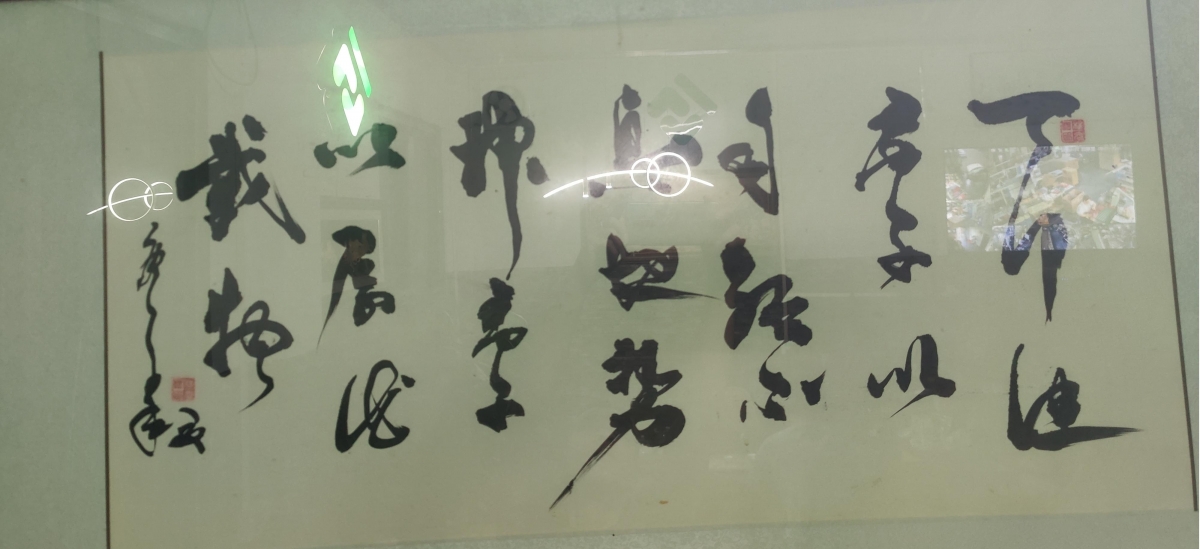 天行健
君子以
自强不
息地势
坤君子
以厚德
載物